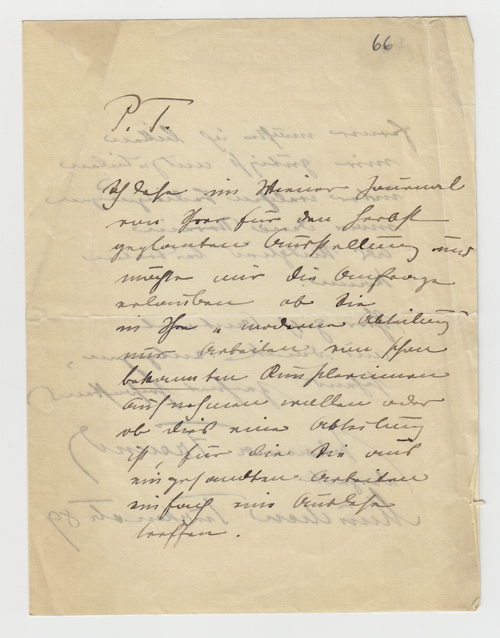 66
P. T.
Ich lese im Wiener Journal
von Ihrer für den Herbst
geplanten Ausstellung und
möchte mir die Anfrage
erlauben ob Sie
in Ihre „moderne Abteilung
nur Arbeiten von Ihnen
bekannten Künstlerinnen
aufnehmen wollen oder
ob dies eine Abteilung
ist, für die Sie aus
eingesandten Arbeiten
einfach eine Auslese
treffen.